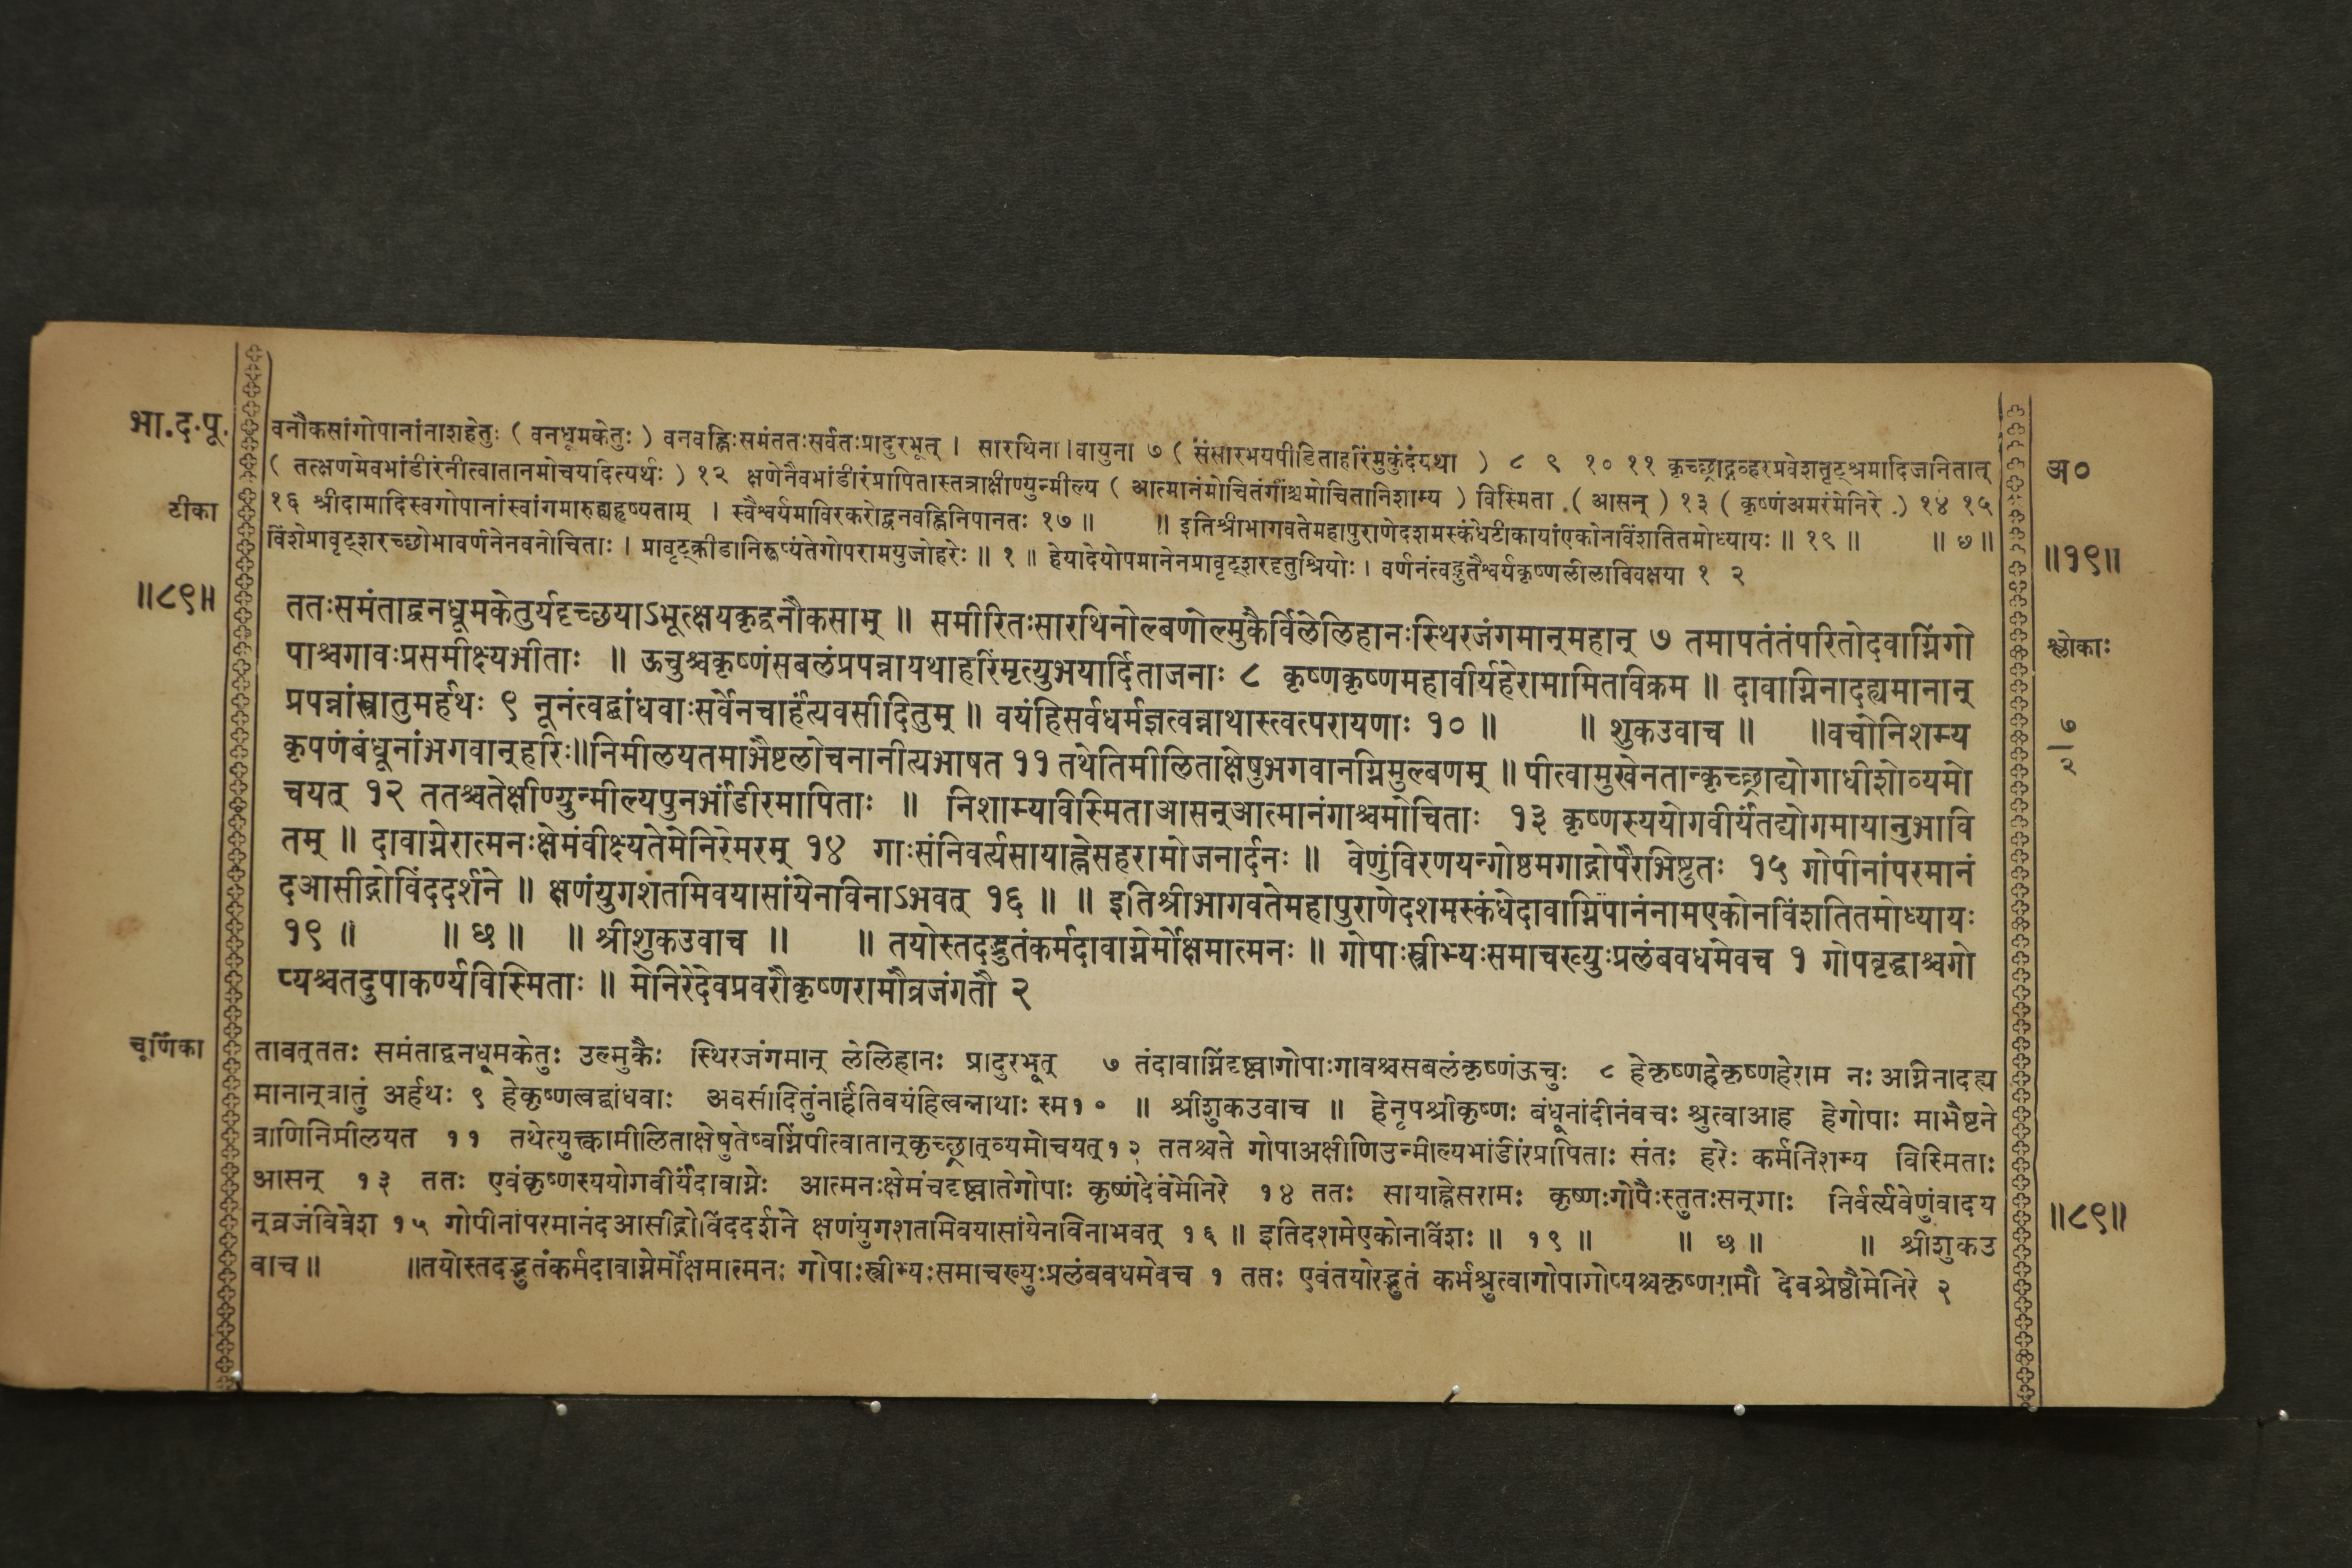 भा.द.पू.
टीका
॥८९॥
वनौकसांगोपानांनाशहेतुः ( वनधूमकेतुः ) वनवह्निःसमंततःसर्वतःप्रादुरभूत् । सारथिना।वायुना ७ ( संसारभयपीडिताहरिंमुकुंदंयथा ) ८ ९ १० ११ कृच्छ्राद्गव्हरप्रवेशतृट्श्रमादिजनितात्
( तत्क्षणमेवभांडीरंनीत्वातानमोचयदित्यर्थः ) १२ क्षणेनैवभांडीरंप्रापितास्तत्राक्षीण्युन्मील्य ( आत्मानंमोचितंगाश्चमोचितानिशाम्य ) विस्मिता ( आसन् ) १३ ( कृष्णंअमरंमेनिरे ) १४ १५
१६ श्रीदामादिस्वगोपानांस्वांगमारुह्यहृष्यताम् । स्वैश्वर्यमाविरकरोद्वनवह्निनिपानतः १७ ॥ ॥ इतिश्रीभागवतेमहापुराणेदशमस्कंधेटीकायांएकोनविंशतितमोध्यायः ॥ १९ ॥ ॥ ७ ॥
विंशेप्रावृट्शरच्छोभावर्णनेनवनोचिताः । प्रावृट्क्रीडानिरूप्यंतेगोपरामयुजोहरेः ॥ १ ॥ हेयादेयोपमानेनप्रावृट्शरदृतुश्रियोः । वर्णनंत्वद्भुतैश्वर्यकृष्णलीलाविवक्षया १ २
ततःसमंताद्वनधूमकेतुर्यदृच्छयाऽभूत्क्षयकृद्वनौकसाम् ॥ समीरितःसारथिनोल्बणोल्मुकैर्विलेलिहानःस्थिरजंगमान्महान् ७ तमापतंतंपरितोदवाग्निंगो
पाश्चगावःप्रसमीक्ष्यभीताः ॥ ऊचुश्चकृष्णंसबलंप्रपन्नायथाहरिंमृत्युभयार्दिताजनाः ८ कृष्णकृष्णमहावीर्यहेरामामितविक्रम ॥ दावाग्निनादह्यमानान्
प्रपन्नांस्त्रातुमर्हथः ९ नूनंत्वद्बांधवाःसर्वेनचार्हंत्यवसीदितुम् ॥ वयंहिसर्वधर्मज्ञत्वन्नाथास्त्वत्परायणाः १० ॥ ॥ शुकउवाच ॥ ॥वचोनिशम्य
कृपणंबंधूनांभगवान्हरिः॥निमीलयतमाभैष्टलोचनानीत्यभाषत ११ तथेतिमीलिताक्षेषुभगवानग्निमुल्बणम् ॥ पीत्वामुखेनतान्कृच्छ्राद्योगाधीशोव्यमो
चयत् १२ ततश्चतेक्षीण्युन्मील्यपुनर्भांडीरमापिताः ॥ निशाम्यविस्मिताआसन्आत्मानंगाश्चमोचिताः १३ कृष्णस्ययोगवीर्यंतद्योगमायानुभावि
तम् ॥ दावाग्नेरात्मनःक्षेमंवीक्ष्यतेमेनिरेमरम् १४ गाःसंनिवर्त्यसायाह्नेसहरामोजनार्दनः ॥ वेणुंविरणयन्गोष्ठमगाद्गोपैरभिष्टुतः १५ गोपीनांपरमानं
दआसीद्गोविंददर्शने ॥ क्षणंयुगशतमिवयासांयेनविनाऽभवत् १६ ॥ ॥ इतिश्रीभागवतेमहापुराणेदशमस्कंधेदावाग्निपानंनामएकोनविंशतितमोध्यायः
१९ ॥ ॥ छ ॥ ॥ श्रीशुकउवाच ॥ ॥ तयोस्तदद्भुतंकर्मदावाग्नेर्मोक्षमात्मनः ॥ गोपाःस्त्रीभ्यःसमाचख्युःप्रलंबवधमेवच १ गोपवृद्धाश्चगो
प्यश्चतदुपाकर्ण्यविस्मिताः ॥ मेनिरेदेवप्रवरौकृष्णरामौव्रजंगतौ २
चूर्णिका
तावत्ततः समंताद्वनधूमकेतुः उल्मुकैः स्थिरजंगमान् लेलिहानः प्रादुरभूत् ७ तंदावाग्निंदृष्ट्वागोपाःगावश्चसबलंकृष्णंऊचुः ८ हेकृष्णहेकृष्णहेराम नः अग्निनादह्य
मानान्त्रातुं अर्हथः ९ हेकृष्णत्वद्बांधवाः अवसीदितुंनार्हंतिवयंहित्वन्नाथाः स्म१० ॥ श्रीशुकउवाच ॥ हेनृपश्रीकृष्णः बंधूनांदीनंवचः श्रुत्वाआह हेगोपाः माभैष्टने
त्राणिनिमीलयत ११ तथेत्युक्त्वामीलिताक्षेषुतेष्वग्निंपीत्वातान्कृच्छ्रात्व्यमोचयत्१२ ततश्चते गोपाअक्षीणिउन्मील्यभांडीरंप्रापिताः संतः हरेः कर्मनिशम्य विस्मिताः
आसन् १३ ततः एवंकृष्णस्ययोगवीर्यंदावाग्नेः आत्मनःक्षेमंचदृष्ट्वातेगोपाः कृष्णंदेवंमेनिरे १४ ततः सायाह्नेसरामः कृष्णःगोपैःस्तुतःसन्गाः निर्वर्त्यवेणुंवादय
न्व्रजंविवेश १५ गोपीनांपरमानंदआसीद्गोविंददर्शने क्षणंयुगशतमिवयासांयेनविनाभवत् १६ ॥ इतिदशमेएकोनविंशः ॥ १९ ॥ ॥ छ ॥ ॥ श्रीशुकउ
वाच ॥ ॥तयोस्तदद्भुतंकर्मदावाग्नेर्मोक्षमात्मनः गोपाःस्त्रीभ्यःसमाचख्युःप्रलंबवधमेवच १ ततः एवंतयोरद्भुतं कर्मश्रुत्वागोपागोप्यश्चकृष्णरामौ देवश्रेष्ठौमेनिरे २
अ०
॥१९॥
श्लोकाः
७
२
॥८९॥